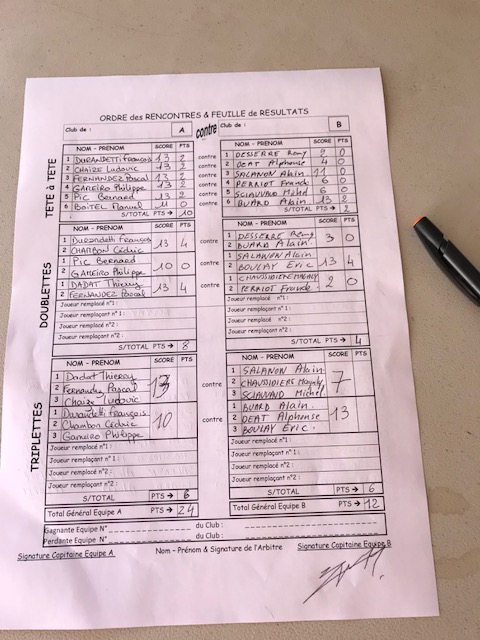 ORDRE des RENCONTRES & FEUILLE de RESULTATS
Club de : A contre Club de : B
TETE à TETE
NOM - PRENOM SCORE PTS NOM - PRENOM SCORE PTS
1 DURANDETTI François 13 2 contre 1 DESSERRE Remy 2 0
2 CHAIZE Ludovic 13 2 contre 2 DEAT Alphonse 4 0
3 FERNANDEZ Pascal 13 2 contre 3 SALANON Alain 11 0
4 GAMEIRO Philippe 13 2 contre 4 PERRIOT Franck 6 0
5 Pic Bernard 13 2 contre 5 SCIAUVAUD Michel 6 0
6 BOITEL Manuel 11 0 contre 6 BUARD Alain 13 2
S/TOTAL PTS → 10 S/TOTAL PTS → 2
DOUBLETTES
NOM - PRENOM SCORE PTS NOM - PRENOM SCORE PTS
1 Durandetti François 13 4 contre 1 DESSERRE Remy 3 0
2 CHAMBON Cédric 2 BUARD Alain
1 Pic Bernard 10 0 contre 1 SALANON Alain 13 4
2 GAMEIRO Philippe 2 BOULAY Eric
1 DADAT Thierry 13 4 contre 1 CHAUSSIDIERE 2 0
2 FERNANDEZ Pascal 2 PERRIOT Franck
Joueur remplacé n°1 : Joueur remplacé n°1 :
Joueur remplaçant n°1 : Joueur remplaçant n°1 :
Joueur remplacé n°2 : Joueur remplacé n°2 :
Joueur remplaçant n°2 : Joueur remplaçant n°2 :
S/TOTAL PTS → 8 S/TOTAL PTS → 4
TRIPLETTES
NOM - PRENOM SCORE PTS NOM - PRENOM SCORE PTS
1 Dadat Thierry 13 contre 1 SALANON Alain 7
2 Fernandez Pascal 2 CHAUSSIDIERE
3 Chaize Ludovic 3 SCIAUVAUD Michel
1 Durandetti François 10 contre 1 BUARD Alain 13
2 Chambon Cédric 2 DEAT Alphonse
3 Gameiro Philippe 3 BOULAY Eric
Joueur remplacé n°1 : Joueur remplacé n°1 :
Joueur remplaçant n°1 : Joueur remplaçant n°1 :
Joueur remplacé n°2 : Joueur remplacé n°2 :
Joueur remplaçant n°2 : Joueur remplaçant n°2 :
S/TOTAL PTS → 6 S/TOTAL PTS → 6
Total Général Equipe A PTS → 24 Total Général Equipe B PTS → 12
Gagnante Equipe N° du Club :
Perdante Equipe N° du Club :
Signature Capitaine Equipe A Nom - Prénom & Signature de l'Arbitre Signature Capitaine Equipe B